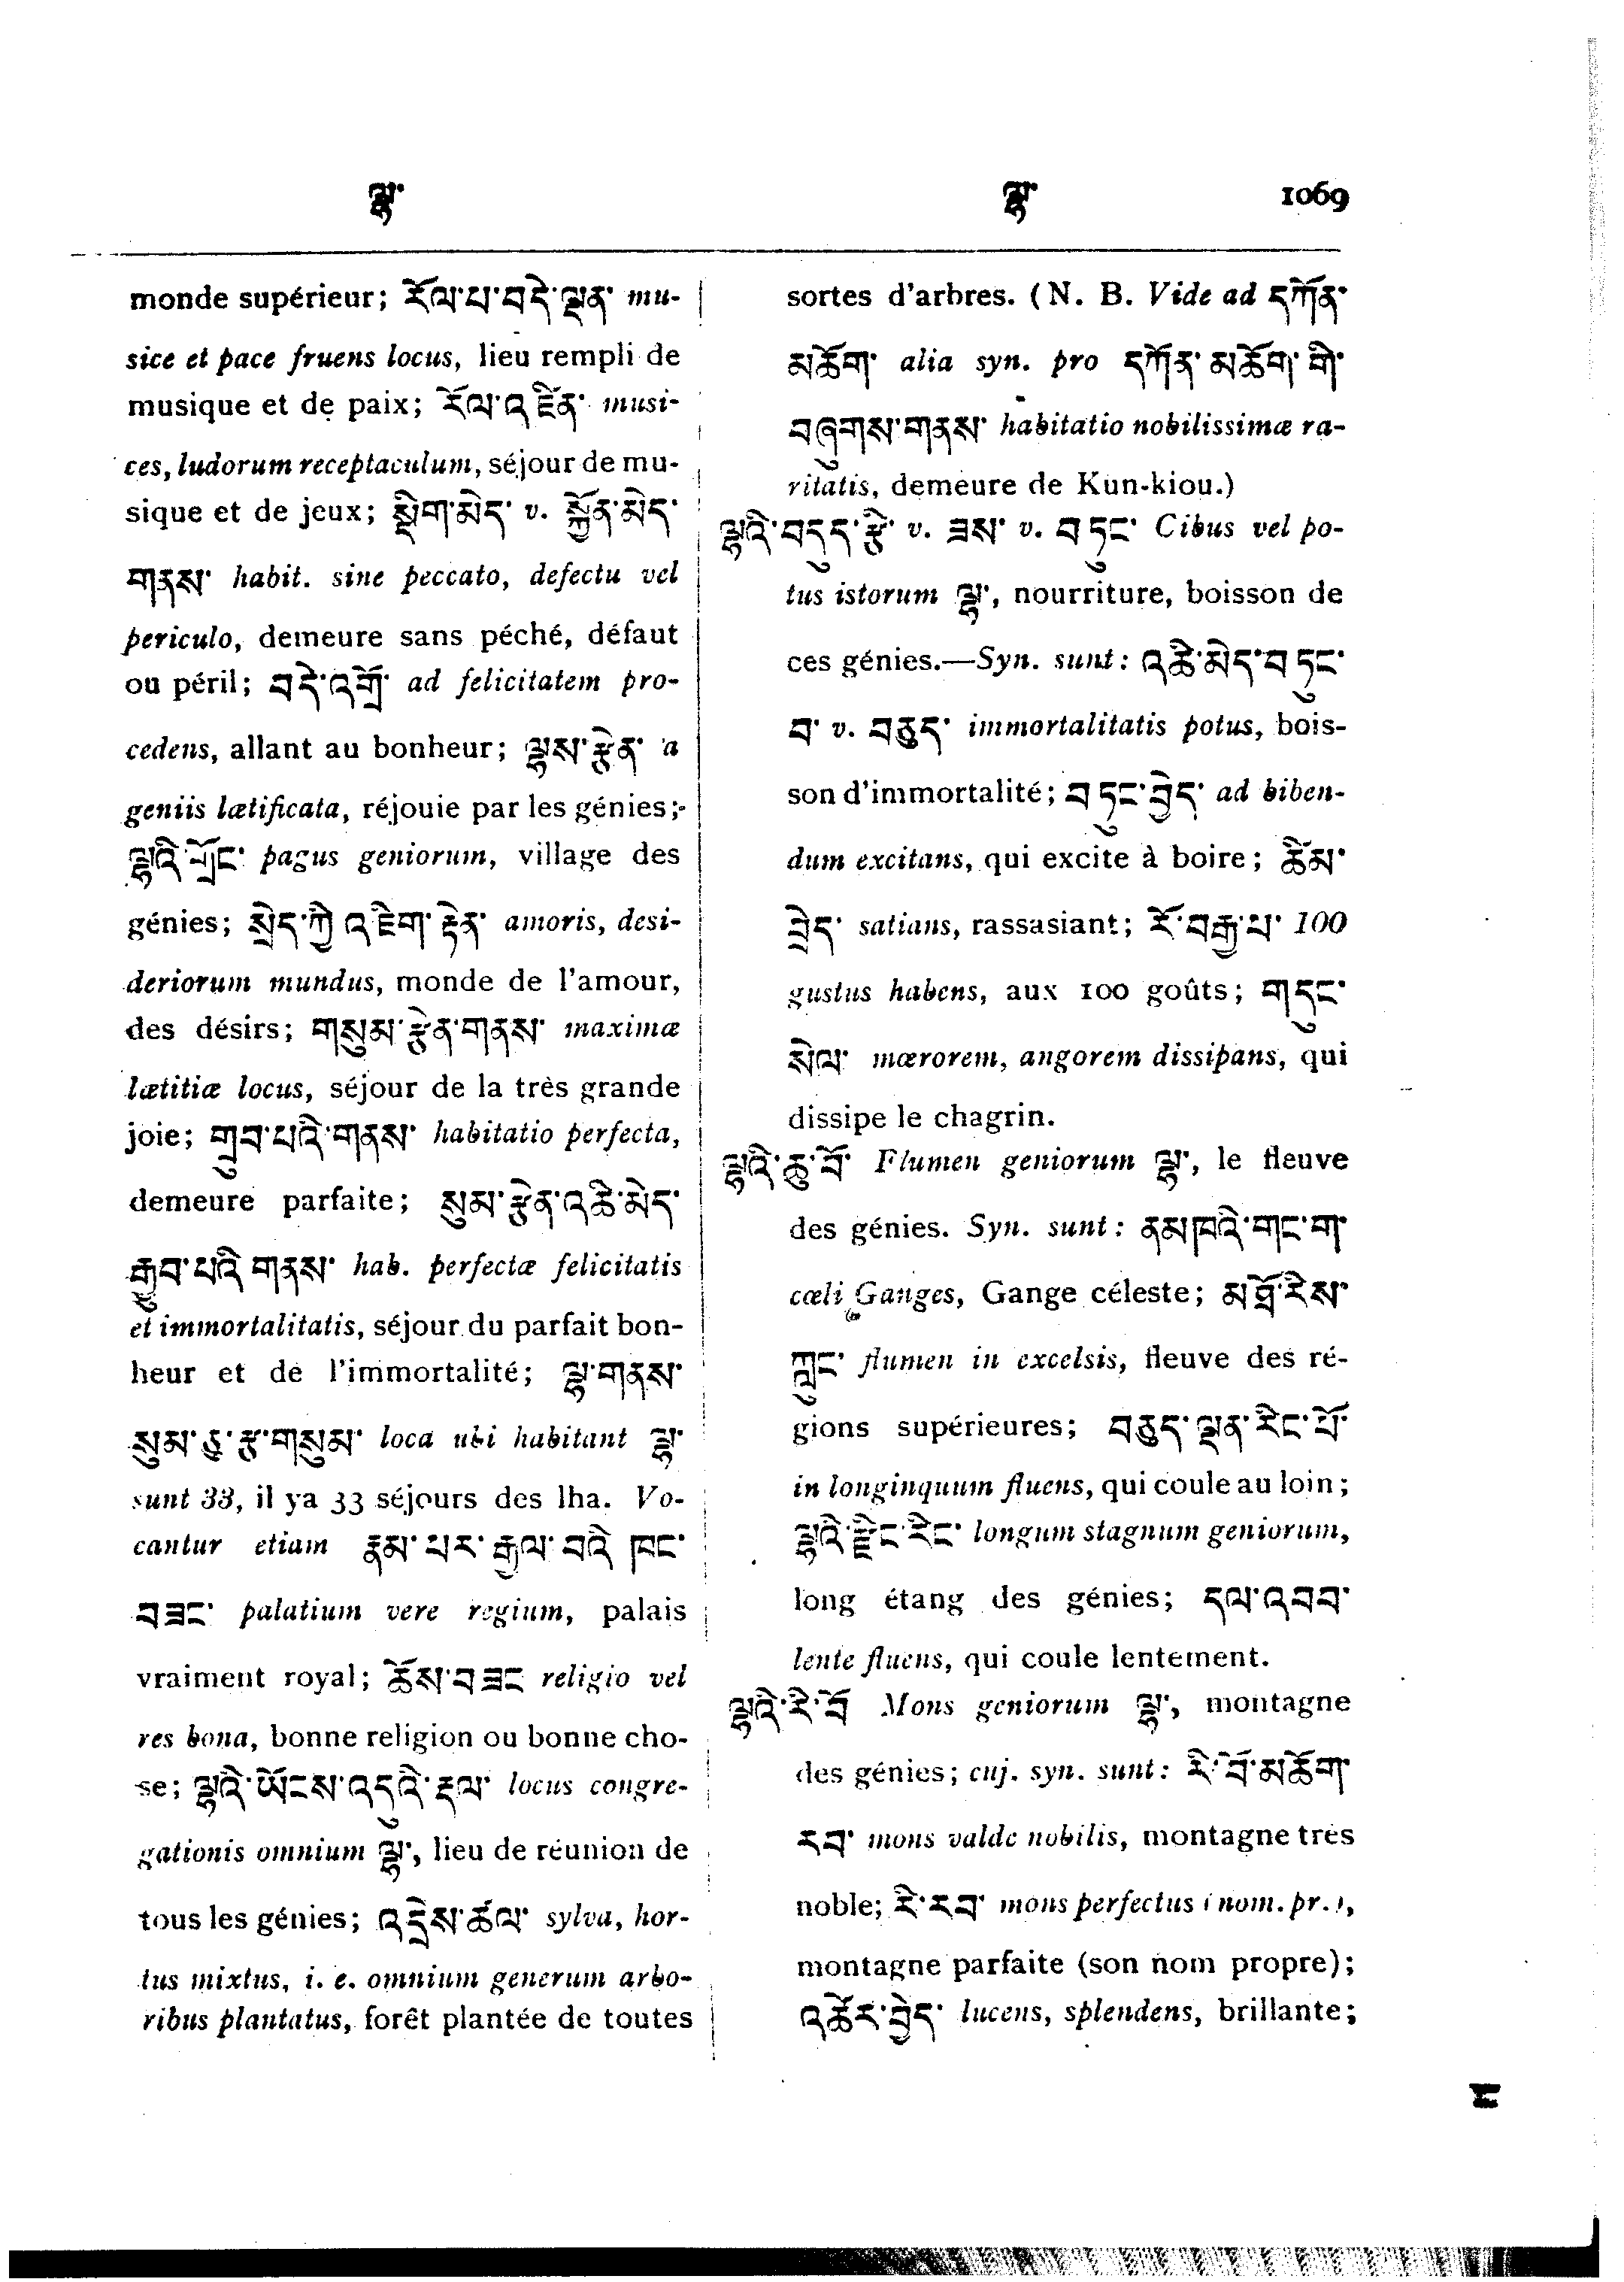 ལྷ་ ལྷ་ 1069
monde supérieur; རོལ་པ་བདེ་ལྡན་ mu-
sice et pace fruens locus, lieu rempli de
musique et de paix; རོལ་འཛིན་ musi-
ces, ludorum receptaculum, séjour de mu-
sique et de jeux; སྡིག་མེད་ v. སྐྱོན་མེད་
གནས་ habit. sine peccato, defectu vel
periculo, demeure sans péché, défaut
ou péril; བདེ་འགྲོ་ ad felicitatem pro-
cedens, allant au bonheur; ལྷས་རྩེན་ a
geniis lætificata, réjouie par les génies;
ལྷའི་གྲོང་ pagus geniorum, village des
génies; སྲེད་ཀྱི་འཇིག་རྟེན་ amoris, desi-
deriorum mundus, monde de l'amour,
des désirs; གསུམ་རྩེན་གནས་ maximæ
lætitiæ locus, séjour de la très grande
joie; གྲུབ་པའི་གནས་ habitatio perfecta,
demeure parfaite; སུམ་རྩེན་འཆི་མེད་
གྲུབ་པའི་གནས་ hab. perfectæ felicitatis
et immortalitatis, séjour du parfait bon-
heur et de l'immortalité; ལྷ་གནས་
སུམ་ཅུ་རྩ་གསུམ་ loca ubi habitant ལྷ་
sunt 33, il ya 33 séjours des lha. Vo-
cantur etiam རྣམ་པར་རྒྱལ་བའི་ཁང་
བཟང་ palatium vere regium, palais
vraiment royal; ཆོས་བཟང religio vel
res bona, bonne religion ou bonne cho-
se; ལྷའི་ཡོངས་འདུའི་རྡལ་ locus congre-
gationis omnium ལྷ་, lieu de réunion de
tous les génies; འདྲེས་ཚལ་ sylva, hor-
tus mixtus, i. e. omnium generum arbo-
ribus plantatus, forêt plantée de toutes
sortes d'arbres. (N. B. Vide ad དཀོན་
མཆོག་ alia syn. pro དཀོན་མཆོག་གི་
བཞུགས་གནས་ habitatio nobilissimæ ra-
ritatis, demeure de Kun-kiou.)
ལྷའི་བདུད་རྩི་ v. ཟས་ v. བཏུང་ Cibus vel po-
tus istorum ལྷ་, nourriture, boisson de
ces génies.—Syn. sunt: འཆི་མེད་བཏུང་
བ་ v. བཅུད་ immortalitatis potus, bois-
son d'immortalité; བཏུང་བྱེད་ ad biben-
dum excitans, qui excite à boire; ཚིམ་
བྱེད་ satians, rassasiant; རོ་བརྒྱ་པ་ 100
gustus habens, aux 100 goûts; གདུང་
སེལ་ mærorem, angorem dissipans, qui
dissipe le chagrin.
ལྷའི་ཆུ་བོ་ Flumen geniorum ལྷ་, le fleuve
des génies. Syn. sunt: ནམཁའི་གང་ག་
cæli Ganges, Gange céleste; མཐོ་རིས་
ཀླུང་ flumen in excelsis, fleuve des ré-
gions supérieures; བཅུད་ལྡན་རིང་པོ་
in longinquum fluens, qui coule au loin;
ལྷའི་རྫིང་རིང་ longum stagnum geniorum,
long étang des génies; དལ་འབབ་
lente fluens, qui coule lentement.
ལྷའི་རི་བོ Mons geniorum ལྷ་, montagne
des génies; cuj. syn. sunt: རི་བོ་མཆོག་
རབ་ mons valde nobilis, montagne très
noble; རི་རབ་ mons perfectus (nom. pr.),
montagne parfaite (son nom propre);
འཚེར་བྱེད་ lucens, splendens, brillante;